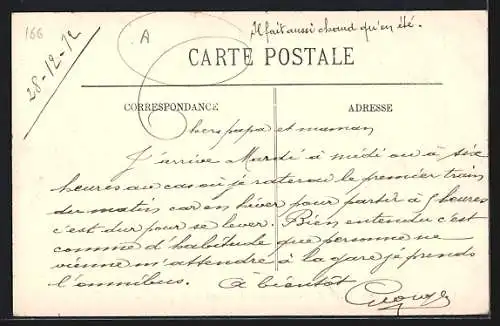 166
A
Il fait aussi chaud qu'en été.
28-12-12
CARTE POSTALE
CORRESPONDANCE
ADRESSE
Chers papa et maman
J'arrive Mardi à midi ou à six
heures au cas où je raterau le premier train
du matin car en hiver pour partir à 5 heures
c'est dur pour se lever. Bien entendu c'est
comme d'habitude que personne ne
vienne m'attendre à la gare je prends
l'omnibus. A bientôt